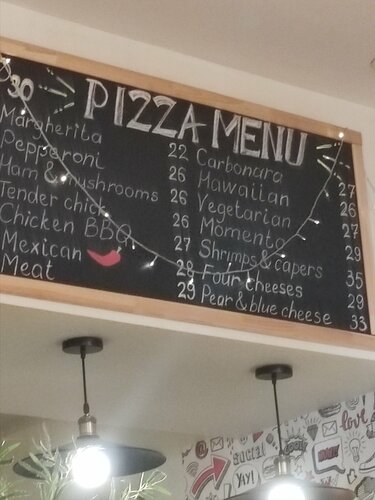 30
PIZZA MENU
Margherita 22
Pepperoni 26
Ham & mushrooms 26
Tender chick 26
Chicken BBQ 27
Mexican 28
Meat 29
Carbonara 27
Hawaiian 26
Vegetarian 27
Momento 29
Shrimps & capers 35
Four cheeses 29
Pear & blue cheese 33
SOCIAL
YiY!
love